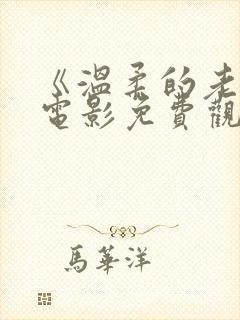 《溫柔的老
電影免費觀
馬華洋